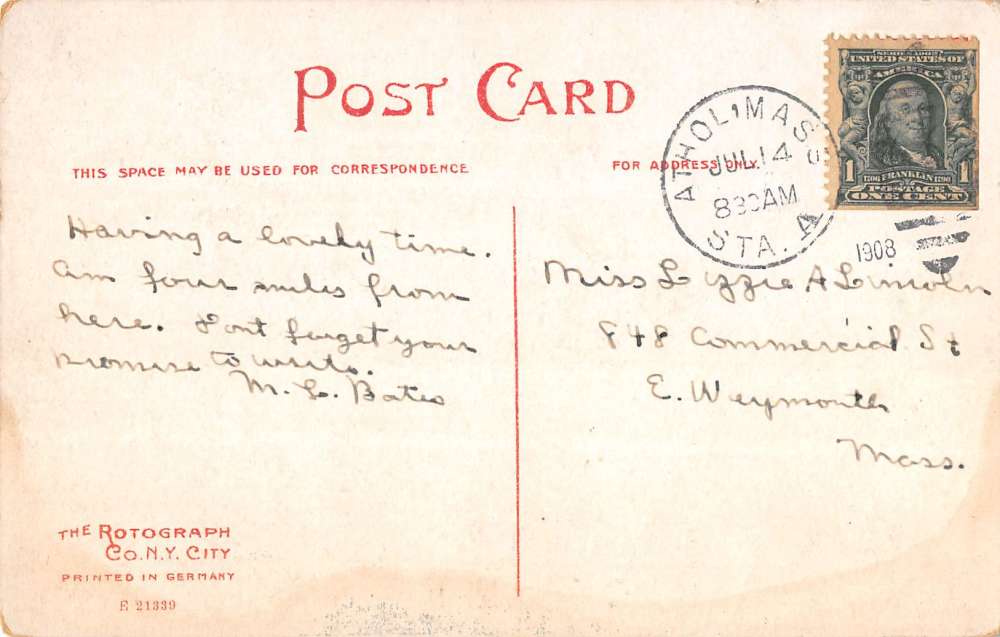 POST CARD
THIS SPACE MAY BE USED FOR CORRESPONDENCE
FOR ADDRESS ONLY.
ATHOL, MASS
JUL 14
830AM
STA. A
1908
SERIES 1902
UNITED STATES OF
AMERICA
1 1
1706 FRANKLIN 1790
POSTAGE
ONE CENT
Having a lovely time.
am four miles from
here. Dont forget your
promise to write.
M. L. Bates
Miss Lizzie A Lincoln
848 Commercial St
E. Weymouth
Mass.
THE ROTOGRAPH
CO. N.Y. CITY
PRINTED IN GERMANY
E 21339